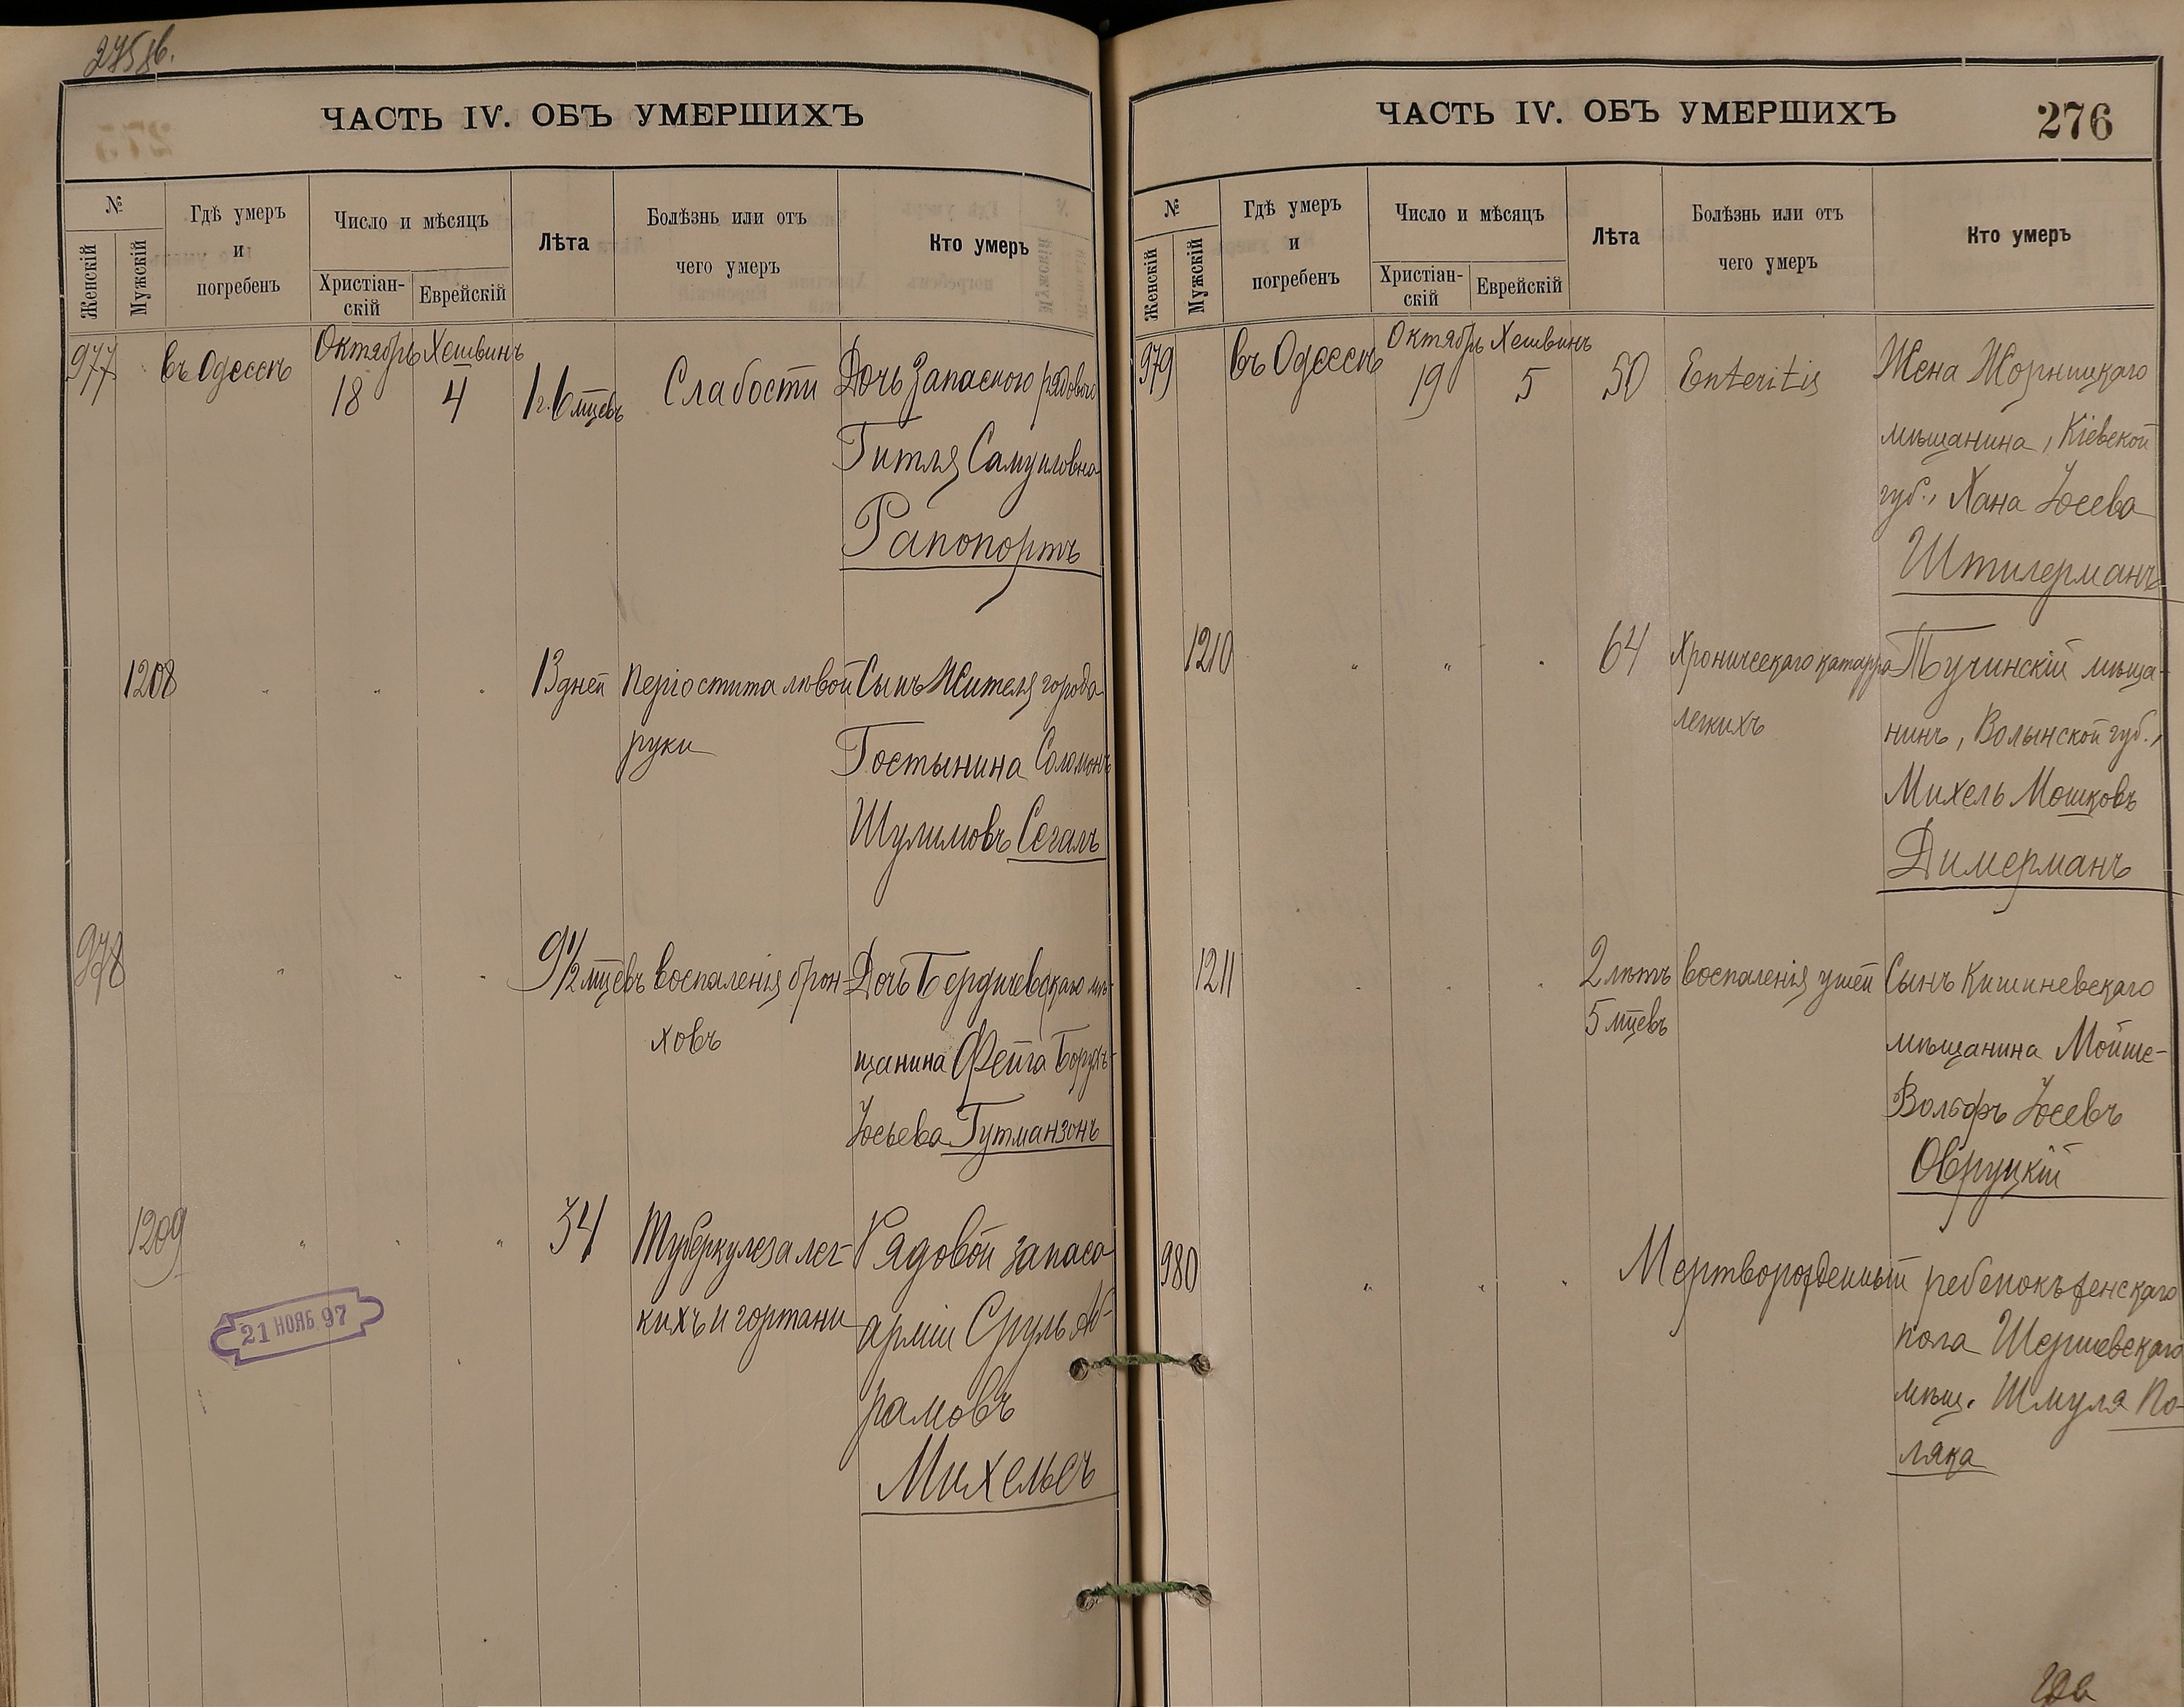 ЧАСТЬ IV. ОБЪ УМЕРШИХЪ
№
Женскій
Мужскій
Гдѣ умеръ
и
погребенъ
Число и мѣсяцъ
Христіан-
скій
Еврейскій
Лѣта
Болѣзнь или отъ
чего умеръ
Кто умеръ
977
въ Одессѣ
Октябрь Хешвинъ
18
4
1 г. 6 мцевъ
Слабости
Дочь запасного рядового
Гитля Самуиловна
Рапопортъ
1208
13 дней
періостита лѣвой
руки
Сынъ Жителя города
Гостынина Соломонъ
Шулимовъ Сегалъ
978
9 1/2 мцевъ
воспаленія брон-
ховъ
Дочь Бердичевскаго мѣ-
щанина Фейга Борухъ-
Іосьева Гутманзонъ
1209
34
Туберкулеза лег-
кихъ и гортани
Рядовой запаса
арміи Сруль Аб-
рамовъ
Михельсъ
21 НОЯБ. 97
ЧАСТЬ IV. ОБЪ УМЕРШИХЪ
276
№
Женскій
Мужскій
Гдѣ умеръ
и
погребенъ
Число и мѣсяцъ
Христіан-
скій
Еврейскій
Лѣта
Болѣзнь или отъ
чего умеръ
Кто умеръ
979
въ Одессѣ
Октябрь Хешвинъ
19
5
50
Enteritis
Жена Жорницкаго
мѣщанина, Кіевской
губ., Хана Іосева
Штилерманъ
1210
64
Хроническаго катарра
легкихъ
Тучинскій мѣща-
нинъ, Волынской губ.,
Михель Мошковъ
Димерманъ
1211
2 лѣтъ
5 мцевъ
воспаленія ушей
Сынъ Кишиневскаго
мѣщанина Мойше-
Вольфъ Іосевъ
Овруцкій
980
Мертворожденный ребенокъ женскаго
пола Шершевскаго
мѣщ. Шмуля По-
ляка